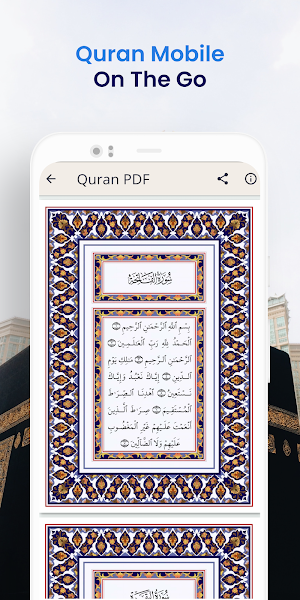 Quran Mobile
On The Go
Quran PDF
سُورَةُ الفَاتِحَةِ
بِسْمِ ٱللَّهِ ٱلرَّحْمَٰنِ ٱلرَّحِيمِ ۝
ٱلْحَمْدُ لِلَّهِ رَبِّ ٱلْعَٰلَمِينَ ۝
ٱلرَّحْمَٰنِ ٱلرَّحِيمِ ۝ مَٰلِكِ يَوْمِ
ٱلدِّينِ ۝ إِيَّاكَ نَعْبُدُ وَإِيَّاكَ
نَسْتَعِينُ ۝ ٱهْدِنَا ٱلصِّرَٰطَ
ٱلْمُسْتَقِيمَ ۝ صِرَٰطَ ٱلَّذِينَ
أَنْعَمْتَ عَلَيْهِمْ غَيْرِ ٱلْمَغْضُوبِ
عَلَيْهِمْ وَلَا ٱلضَّآلِّينَ ۝